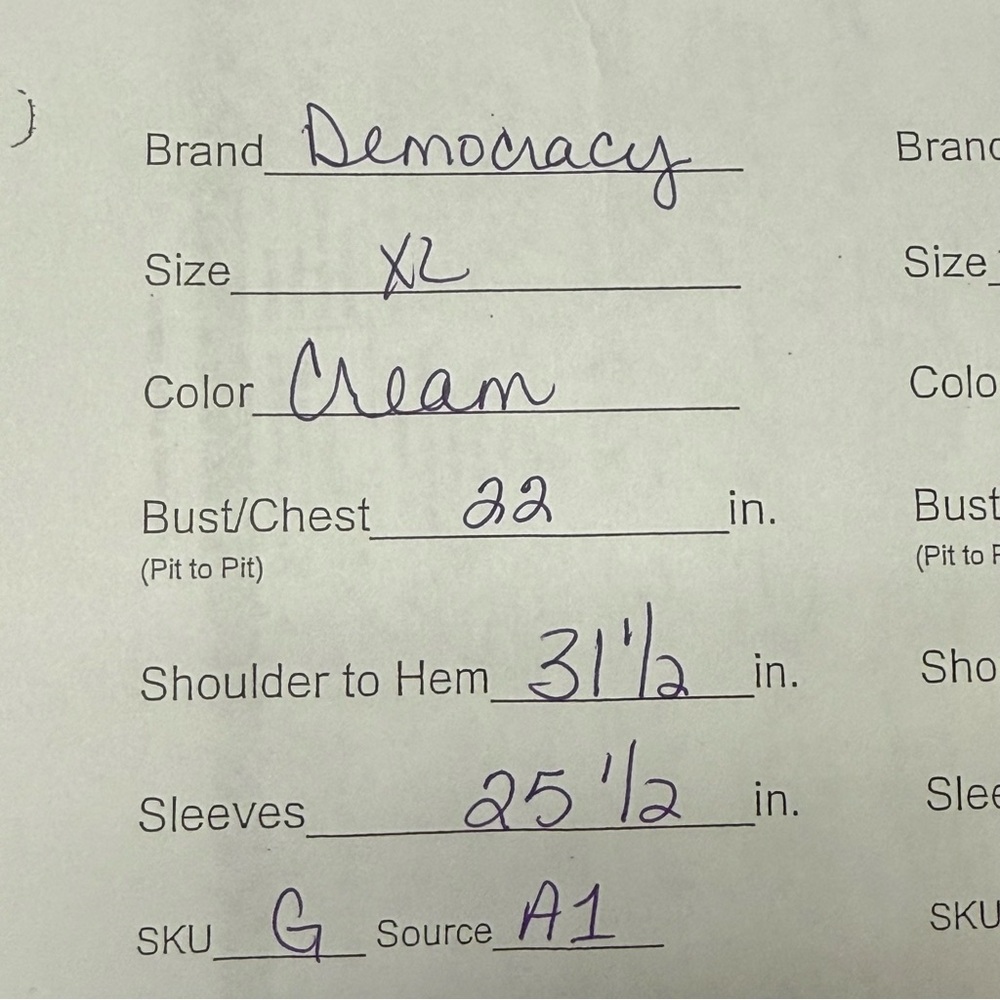 )
Brand Democracy
Size XL
Color Cream
Bust/Chest 22 in.
(Pit to Pit)
Shoulder to Hem 31 1/2 in.
Sleeves 25 1/2 in.
SKU G Source A1
Branc
Size
Colo
Bust
(Pit to F
Sho
Slee
SKU